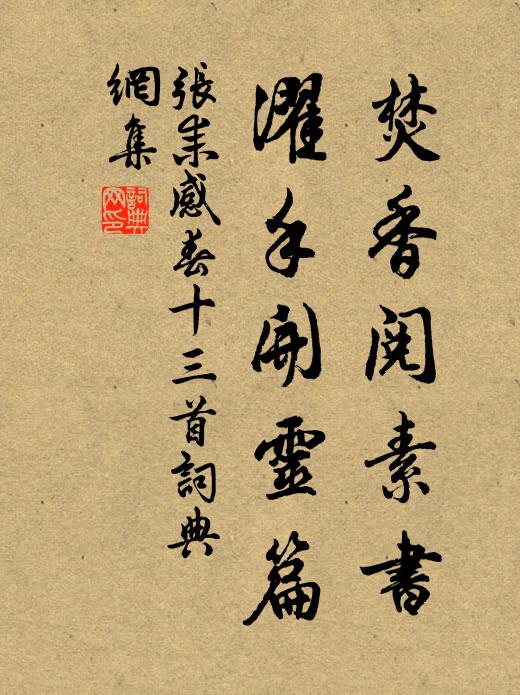 焚香閱素書
濯手開靈篇
張耒感春十三首詞典
網集
詞典網印